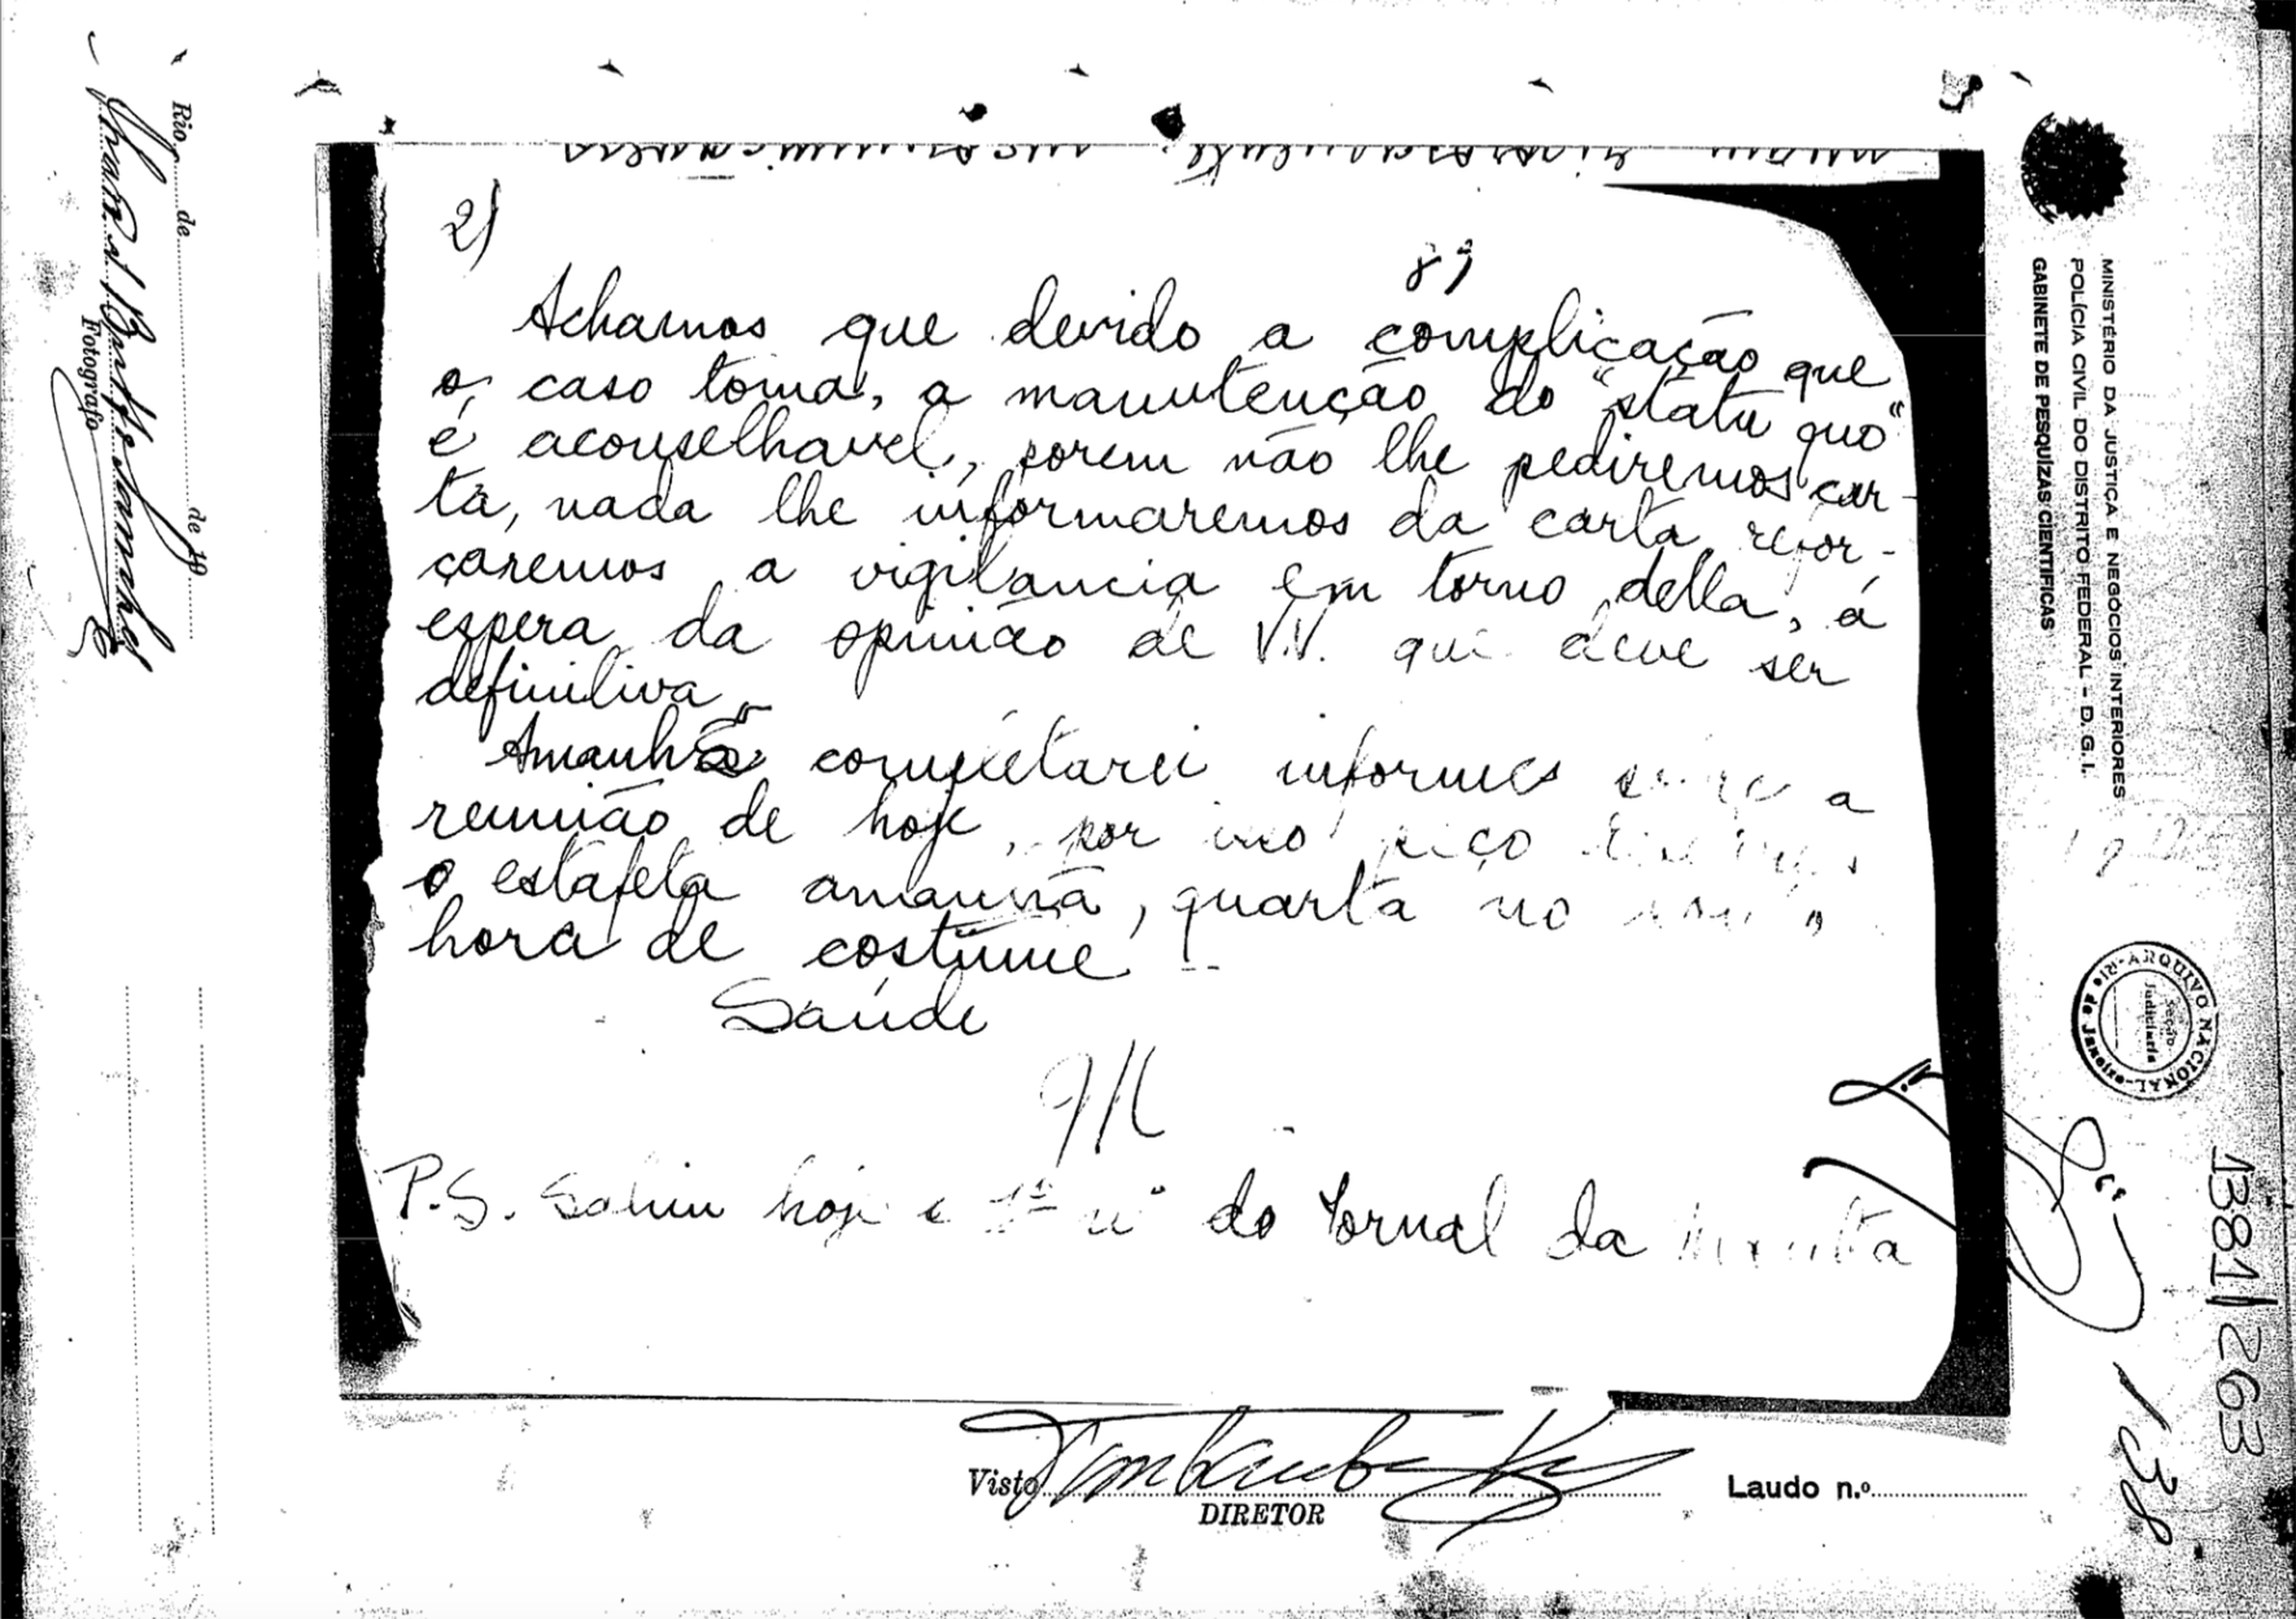 2)
Achamos que devido a complicação que
o caso toma, a manutenção do "statu quo"
é aconselhavel, porem não lhe pediremos car-
ta, nada lhe informaremos da carta refor-
çaremos a vigilancia em torno della, á
espera da opinião de V.V. que deve ser
definitiva
Amanhã completarei informes a
reunião de hoje, por isso peço
o estafeta amanhã, quarta no
hora de costume
Saúde
P.S. Sahiu hoje o 1º nº do Jornal da
Visto
DIRETOR
Laudo n.º
MINISTÉRIO DA JUSTIÇA E NEGÓCIOS INTERIORES
POLÍCIA CIVIL DO DISTRITO FEDERAL – D. G. I.
GABINETE DE PESQUÍZAS CIENTIFICAS
ARQUIVO NACIONAL-Rio de Janeiro
Secção
Judiciaria
1381/263
138
Rio, de de 19
Fotografo